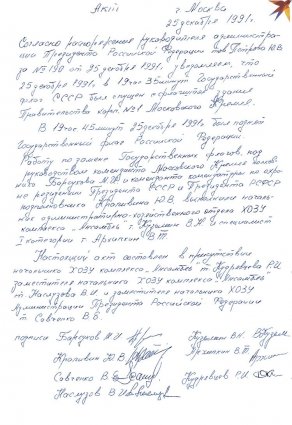 Акт г. Москва
25 декабря 1991г.
Согласно распоряжения руководителя администра-
ции Президента Российской Федерации тов. Петрова Ю.В.
за № 190 от 25 декабря 1991г, уведомляем, что
25 декабря 1991г. в 19 час 35 минут Государственный
флаг СССР был спущен с флагштока здания
Правительства корп. №1 Московского Кремля.
В 19 час 45 минут 25 декабря 1991г. был поднят
Государственный флаг Российской Федерации.
Работу по замене Государственных флагов, под
руководством коменданта Московского Кремля
Барсукова М.И. и коменданта комендатуры по охра-
не резиденции Президента СССР и Президента РСФСР
Крапивина Ю.В. выполнили началь-
ник административно-хозяйственного отдела ХОЗУ
комплекса т. Кузьмин В.Н. и специалист
I категории т. Архипкин В.Т.
Настоящий акт составлен в присутствии
начальника ХОЗУ комплекса т. Кудревцева Р.И.
заместителя начальника ХОЗУ комплекса
т. В.И. и заместителя начальника ХОЗУ
Администрации Президента Российской Федерации
т. Савченко В.Е.
подписи Барсуков М.И. Кузьмин В.Н.
Крапивин Ю.В. Архипкин В.Т.
Савченко В.Е. Кудревцев Р.И.
В.И.